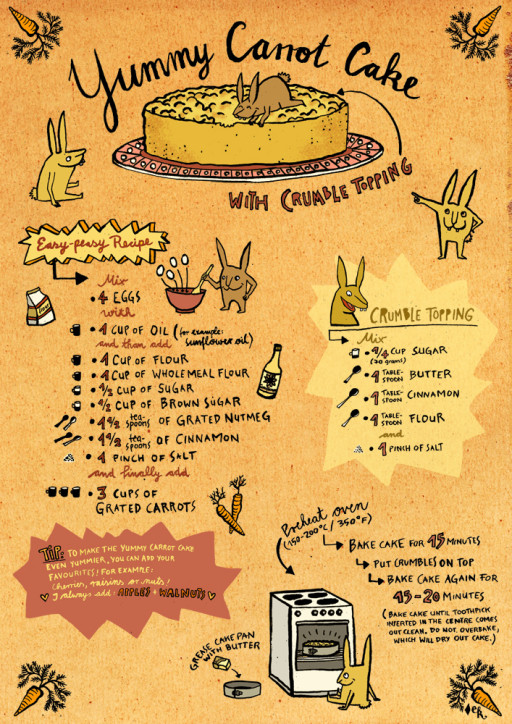 Yummy Carrot Cake
WITH CRUMBLE TOPPING
Easy-peasy Recipe
Mix
4 EGGS
with
1 CUP OF OIL (for example:
sunflower oil)
and then add
1 CUP OF FLOUR
1 CUP OF WHOLEMEAL FLOUR
1/2 CUP OF SUGAR
1/2 CUP OF BROWN SUGAR
1 1/2 tea-spoons OF GRATED NUTMEG
1 1/2 tea-spoons OF CINNAMON
1 PINCH OF SALT
and finally add
3 CUPS OF
GRATED CARROTS
CRUMBLE TOPPING
Mix
1/4 CUP SUGAR
grams)
1 TABLE-SPOON BUTTER
1 TABLE-SPOON CINNAMON
1 TABLE-SPOON FLOUR
and
1 PINCH OF SALT
TIP: TO MAKE THE YUMMY CARROT CAKE
EVEN YUMMIER, YOU CAN ADD YOUR
FAVOURITES! FOR EXAMPLE:
cherries, raisins or nuts!
I always add APPLES + WALNUTS
Preheat oven
(150-200°C / 350°F)
BAKE CAKE FOR 15 MINUTES
PUT CRUMBLES ON TOP
BAKE CAKE AGAIN FOR
15-20 MINUTES
(BAKE CAKE UNTIL TOOTHPICK
INSERTED IN THE CENTRE COMES
OUT CLEAN. DO NOT OVERBAKE,
WHICH WILL DRY OUT CAKE.)
GREASE CAKE PAN
WITH BUTTER